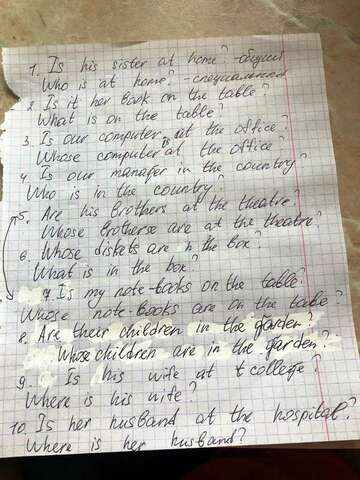 1. Is his sister at home? - общий
Who is at home? - специальный
2. Is it her book on the table?
What is on the table?
3. Is our computer at the office?
Whose computer is at the office?
4. Is our manager in the country?
Who is in the country?
5. Are his brothers at the theatre?
Whose brotherse are at the theatre?
6. Whose diskets are in the box?
What is in the box?
7. Is my note-books on the table?
Whose note-books are on the table?
8. Are their children in the garden?
Whose children are in the garden?
9. Is his wife at t college?
Where is his wife?
10. Is her husband at the hospital?
Where is her husband?